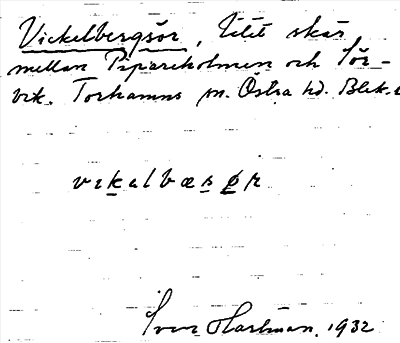 Vickelbergsör, litet skär
mellan Pipareholmen och Tör-
vik. Torhamns sn. Östra hd. Blek.
vikalbæsør
Sven Hartman. 1932